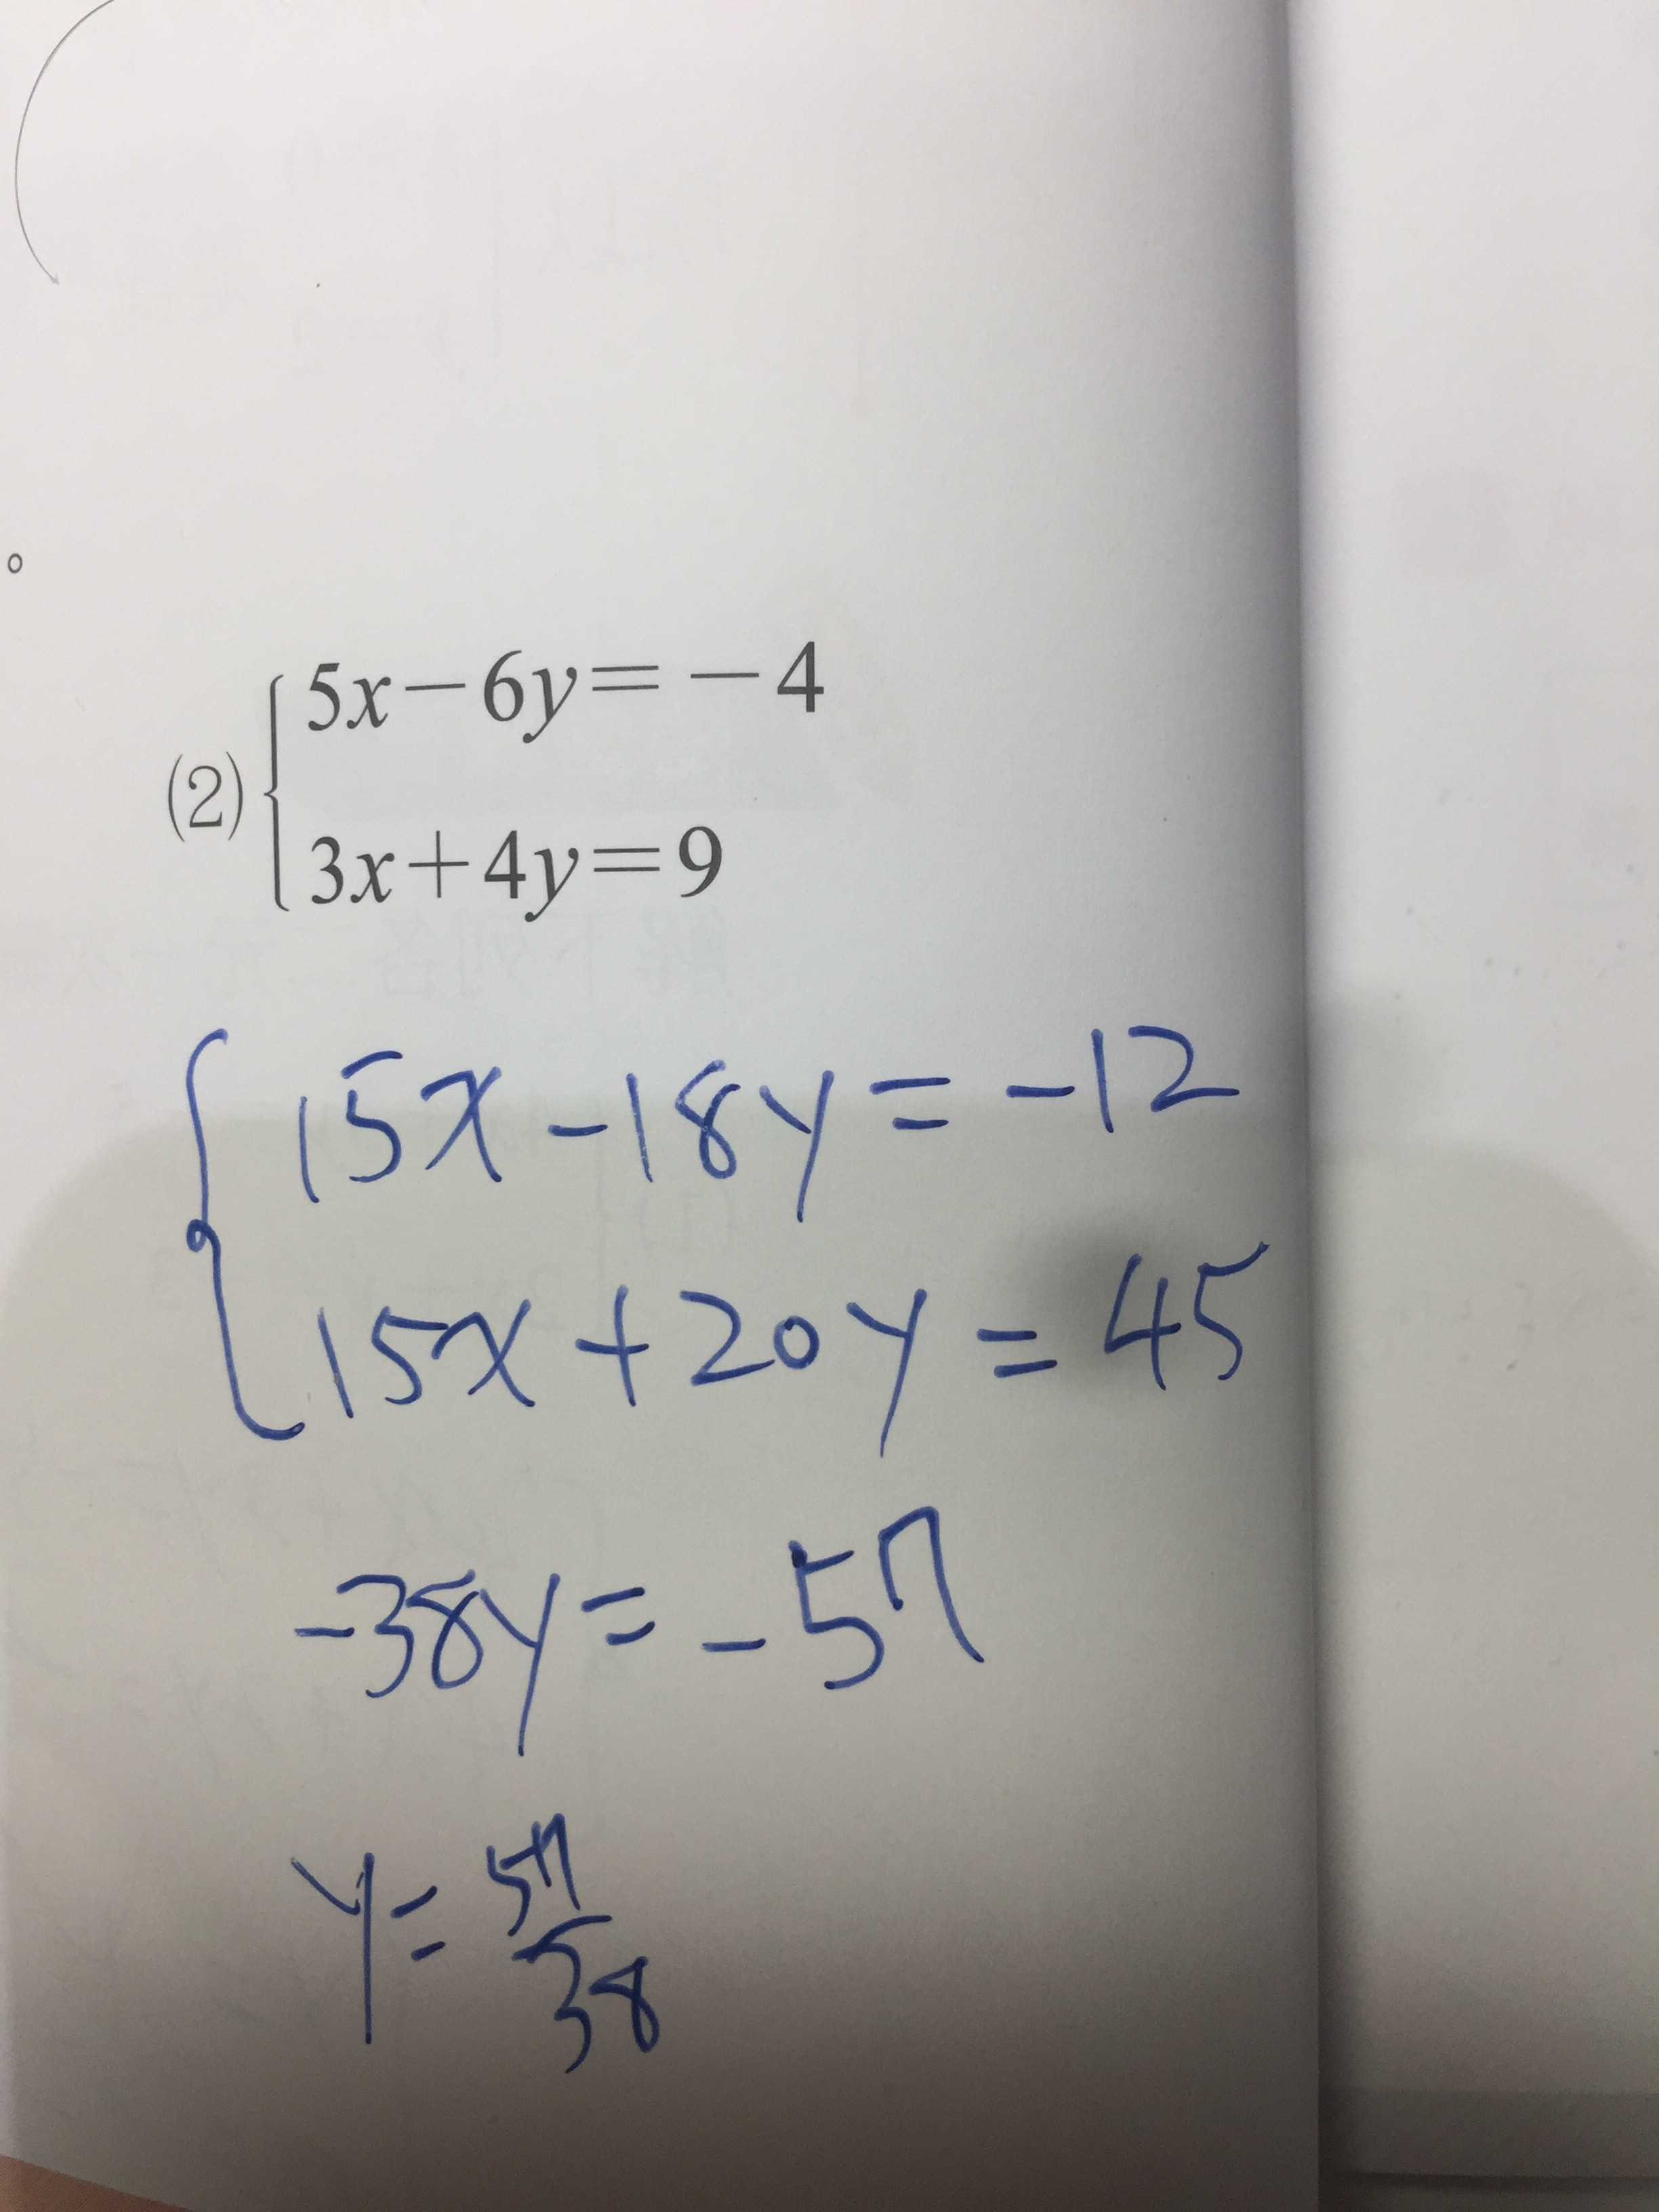 。
(2) { 5x－6y＝－4
3x＋4y＝9
{ 15x - 18y = -12
15x + 20y = 45
-38y = -57
y = 57/38